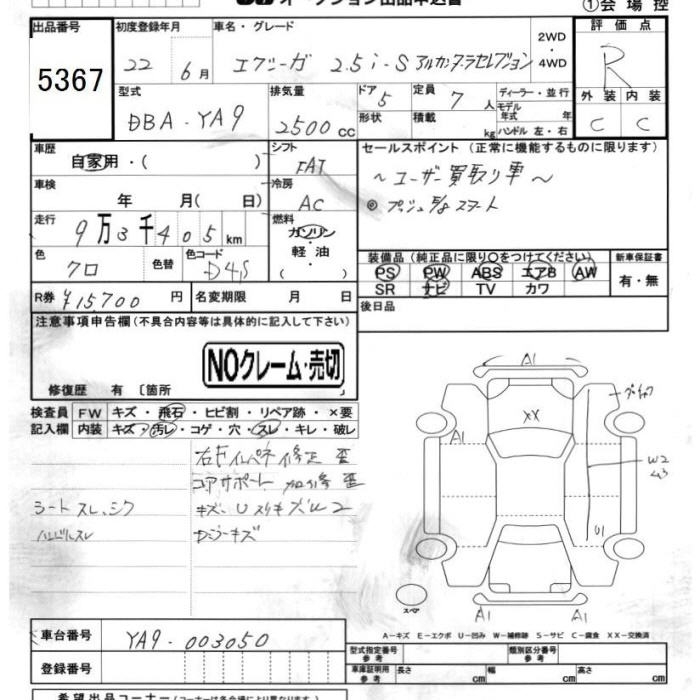 オークション出品申込書
①会場控
出品番号
5367
初度登録年月
22 6月
車名・グレード
エクシーガ 2.5i-S アルカンターラセレクション
2WD
・
4WD
評価点
R
外装 内装
C C
型式
DBA-YA9
排気量
2500 cc
ドア
5
形状
定員
7 人
積載
kg
ディーラー・並行
モデル年式 年
ハンドル 左・右
車歴
自家用・( )
シフト
FAT
車検
年 月( 日)
冷房
AC
走行
9万3千405km
燃料
ガソリン
・
軽油
色
クロ
色替
色コード
D4S
R券 ¥15,700 円
名変期限 月 日
セールスポイント(正常に機能するものに限ります)
~ユーザー買取り車~
◎プッシュスタート
装備品(純正品に限り○をつけてください)
PS PW ABS エアB AW
SR ナビ TV カワ
新車保証書
有・無
後日品
注意事項申告欄(不具合内容等は具体的に記入して下さい)
NOクレーム・売切
修復歴 有 〔箇所 〕
検査員記入欄
FW キズ・飛石・ヒビ割・リペア跡・×要
内装 キズ・汚レ・コゲ・穴・スレ・キレ・破レ
右Fインペネ修正 歪
コアサポート 加修 歪
シートスレ、シワ
キズ・UスリキズW2
ハンドルスレ
A1
XX
A1
W2
U1
A1
A1
スペア
A-キズ E-エクボ U-凹み W-補修跡 S-サビ C-腐食 XX-交換済
車台番号 YA9-003050
登録番号
型式指定番号
参考
類別区分番号
参考
車庫証明用
参考
長さ cm 幅 cm 高さ cm
希望出品コーナー(コーナーは各会場により異なります)